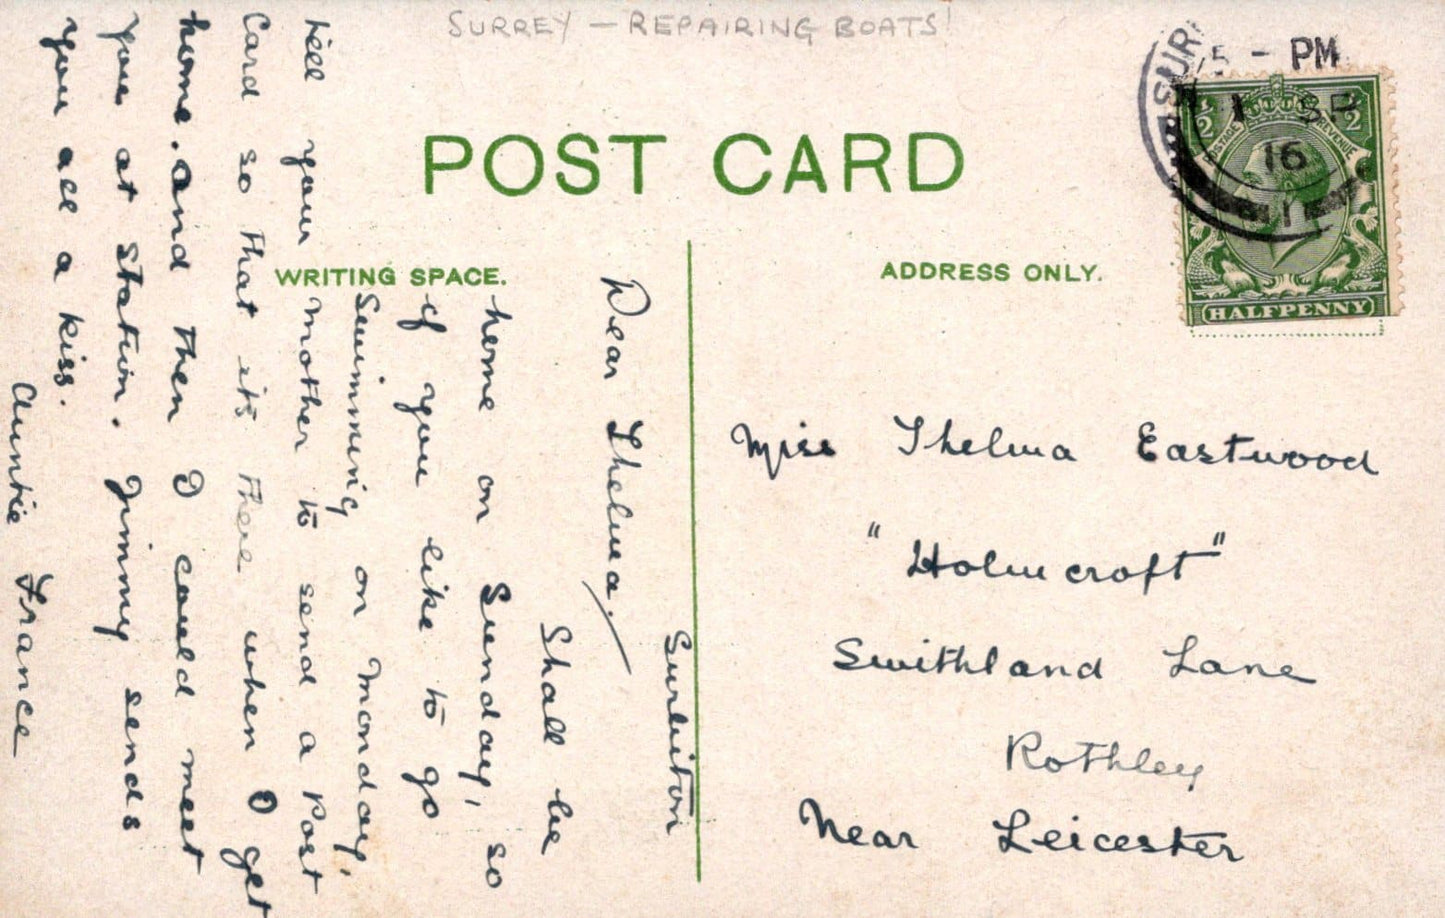 SURREY — REPAIRING BOATS!
POST CARD
WRITING SPACE.
ADDRESS ONLY.
SUR
5 - PM
1 SP
16
1/2
1/2
POSTAGE
REVENUE
HALFPENNY
Surbiton
Dear Thelma.
Shall be
home on Sunday, so
if you like to go
Swimming on Monday,
tell your mother to send a Post
Card so that it's there when I get
home. and then I could meet
you at station. Jimmy sends
you all a kiss.
Auntie France
Miss Thelma Eastwood
"Holmcroft"
Swithland Lane
Rothley
Near Leicester